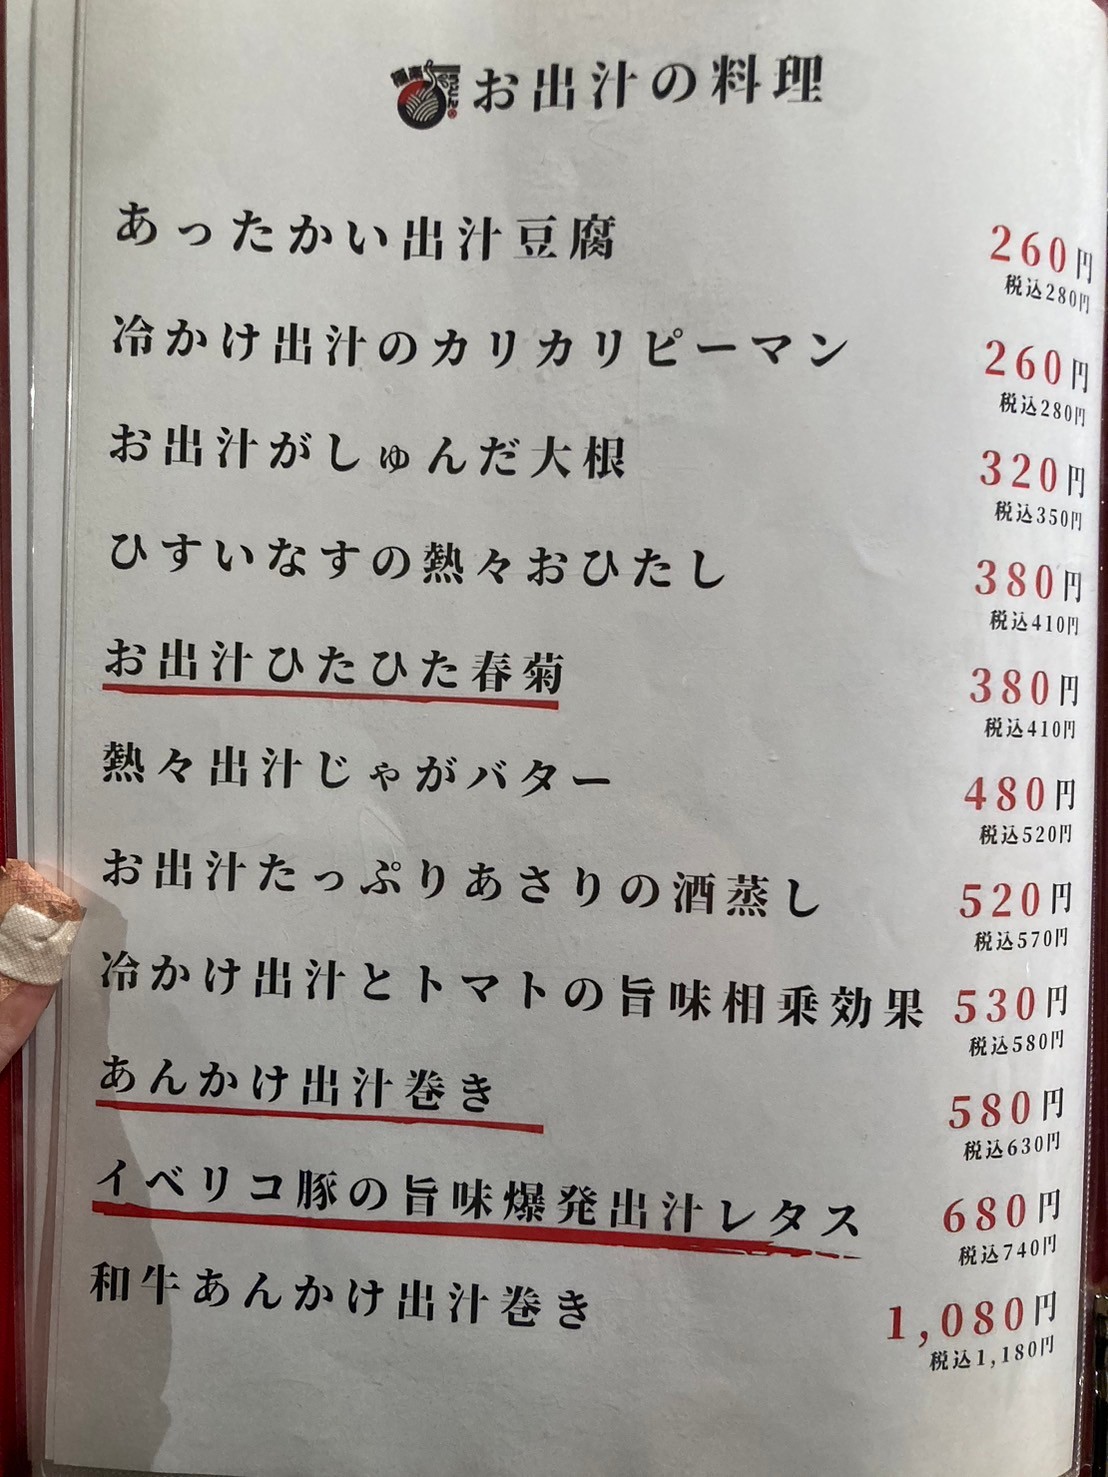 お出汁の料理
あったかい出汁豆腐 260円
税込280円
冷かけ出汁のカリカリピーマン 260円
税込280円
お出汁がしゅんだ大根 320円
税込350円
ひすいなすの熱々おひたし 380円
税込410円
お出汁ひたひた春菊 380円
税込410円
熱々出汁じゃがバター 480円
税込520円
お出汁たっぷりあさりの酒蒸し 520円
税込570円
冷かけ出汁とトマトの旨味相乗効果 530円
税込580円
あんかけ出汁巻き 580円
税込630円
イベリコ豚の旨味爆発出汁レタス 680円
税込740円
和牛あんかけ出汁巻き 1,080円
税込1,180円